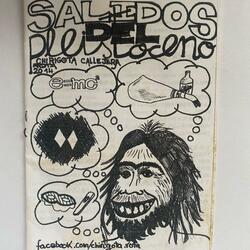 SALIDOS
DEL
Pleistoceno
CHIRIGOTA CALLEJERA
2014
e=mc²
facebook.com/chirigota.rota